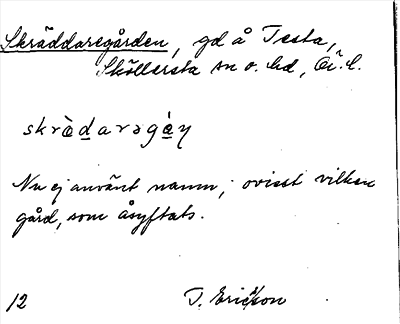 Skräddaregården, gd å Testa,
Sköllersta sn o. hd, Ö. l.
skrædarəgán
Nu ej använt namn; ovisst vilken
gård, som åsyftats.
12 T. Ericsson